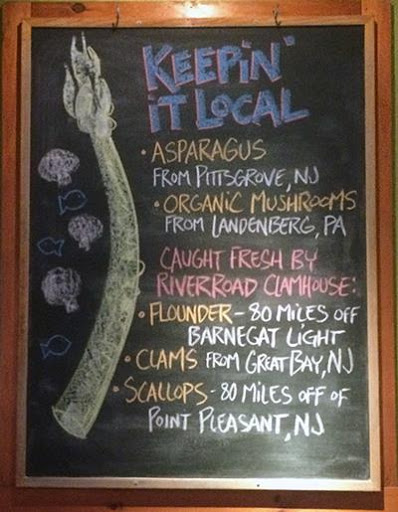 KEEPIN'
IT LOCAL
• ASPARAGUS
FROM PITTSGROVE, NJ
• ORGANIC MUSHROOMS
FROM LANDENBERG, PA
CAUGHT FRESH BY
RIVER ROAD CLAMHOUSE:
• FLOUNDER - 80 MILES OFF
BARNEGAT LIGHT
• CLAMS FROM GREAT BAY, NJ
• SCALLOPS - 80 MILES OFF OF
POINT PLEASANT, NJ